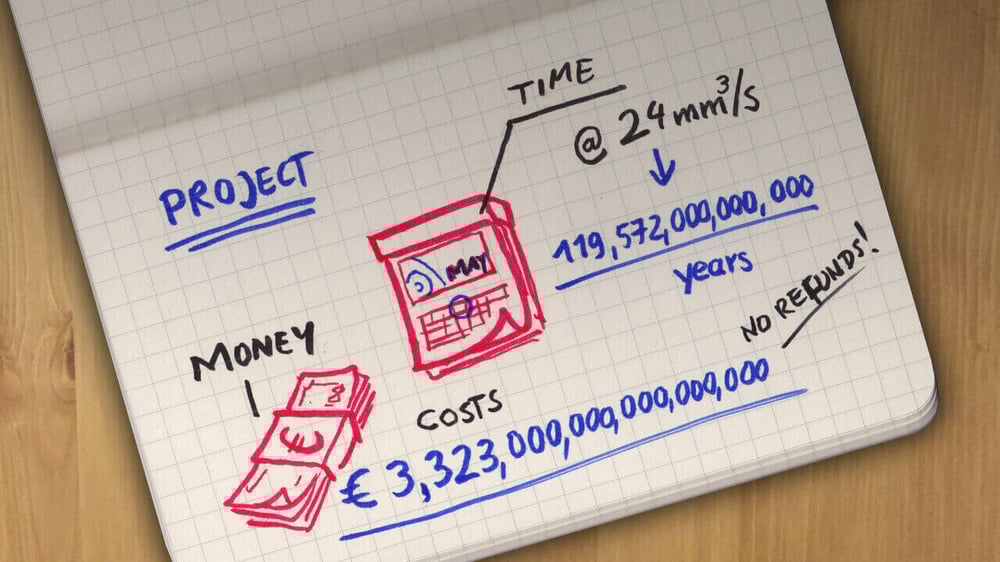 TIME
@ 24 mm³/s
PROJECT
119,572,000,000,000
years
MAY
NO REFUNDS!
MONEY
COSTS
€
€ 3,323,000,000,000,000,000